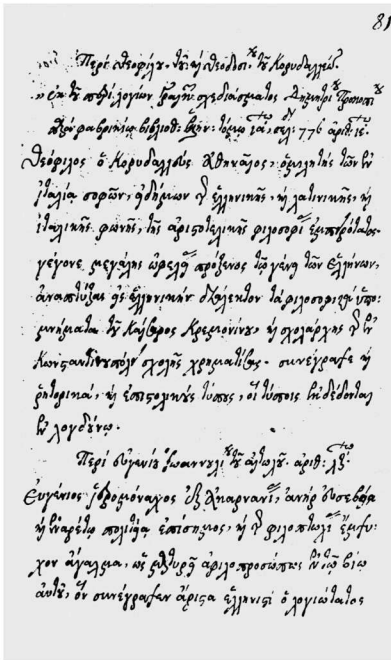 81
Περὶ Θεοφίλου, τοῦ καὶ Θεοδοσίου τοῦ Κορυδαλλέως.
ἐκ τοῦ περὶ λογίων Γραικῶν σχεδιάσματος Δημητρίου Προκοπίου
Φαβρικίῳ βιβλιοθ: τόμῳ ια, σελ: 776 ἀριθ: ιε.
Θεόφιλος ὁ Κορυδαλλεὺς Ἀθηναῖος, ὁμιλητὴς τῶν ἐν
ἰταλίᾳ σοφῶν, εἰδήμων τῆς ἑλληνικῆς, καὶ λατινικῆς, καὶ
ἰταλικῆς φωνῆς, τῆς ἀριστοτελικῆς φιλοσοφίας ἐμπειρότατος.
γέγονε μεγάλης ὠφελείας πρόξενος τῷ γένει τῶν Ἑλλήνων,
ἀναπτύξας εἰς ἑλληνικὴν διάλεκτον τὰ φιλοσοφικὰ ὑπο-
μνήματα τοῦ Καίσαρος Κρεμονίνου, καὶ σχολάρχης τῆς ἐν
Κωνσταντινουπόλει σχολῆς χρηματίσας. συνέγραψε καὶ
ῥητορικὰ, καὶ ἐπιστολικοὺς τύπους, οἳ τύποις ἐκδέδονται
ἐν λογδύνῳ.
Περὶ Εὐγενίου Ἰωαννουλίου τοῦ Αἰτωλοῦ. ἀριθ: λζ.
Εὐγένιος ἱερομόναχος ἐξ Ἀκαρνανίας, ἀνὴρ εὐσεβείᾳ
καὶ ἐναρέτῳ πολιτείᾳ ἐπίσημος, καὶ τῆς φιλοπτωχίας ἔμψυ-
χον ἄγαλμα, ὡς μαρτυρεῖ ἀφιλοπροσώπως ἐν τῷ βίῳ
αὐτοῦ, ὃν συνέγραψεν ἄριστα ἑλληνιστὶ ὁ λογιώτατος